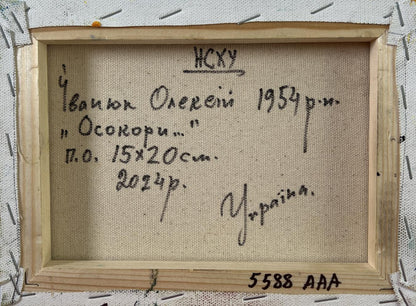 НСХУ
Іванюк Олексій 1954 р.н.
„Осокори..."
п.о. 15х20 см.
2024р.
Україна.
5588 ААА